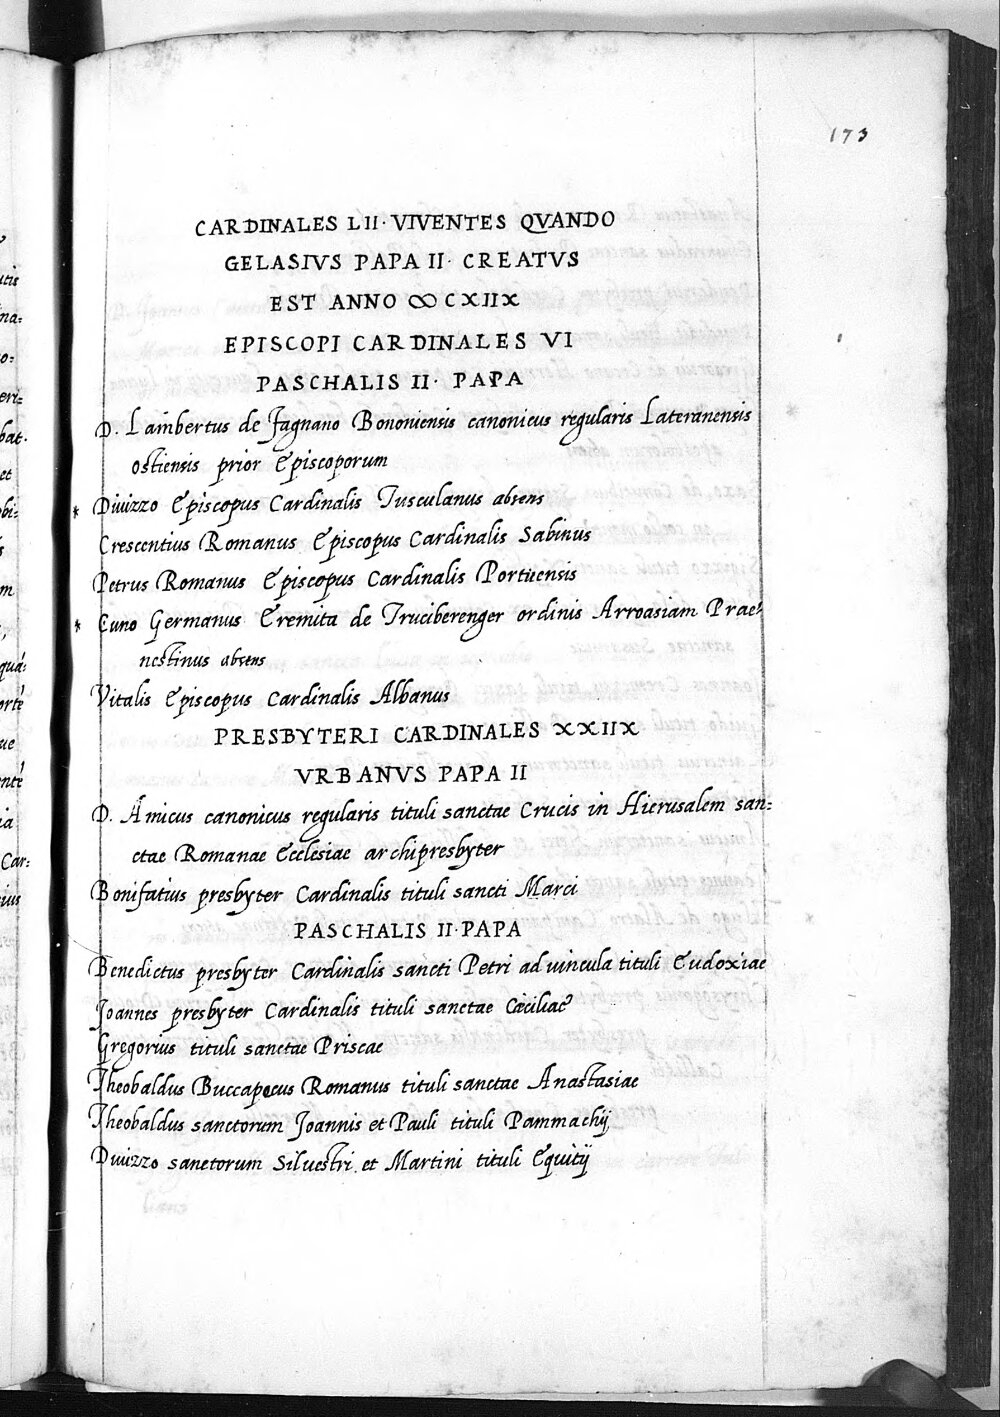 173
CARDINALES LII· VIVENTES QVANDO
GELASIVS PAPA II· CREATVS
EST ANNO ∞CXIIX
EPISCOPI CARDINALES VI
PASCHALIS II· PAPA
D. Lambertus de Fagnano Bononiensis canonicus regularis Lateranensis
ostiensis prior Episcoporum
* Diuizzo Episcopus Cardinalis Tusculanus absens
Crescentius Romanus Episcopus Cardinalis Sabinus
Petrus Romanus Episcopus Cardinalis Portuensis
* Cuno Germanus Eremita de Truciberenger ordinis Arroasiam Prae=
nestinus absens
Vitalis Episcopus Cardinalis Albanus
PRESBYTERI CARDINALES XXIIX
VRBANVS PAPA II
D. Amicus canonicus regularis tituli sanctae Crucis in Hierusalem san=
ctae Romanae Ecclesiae archipresbyter
Bonifatius presbyter Cardinalis tituli sancti Marci
PASCHALIS II· PAPA
Benedictus presbyter Cardinalis sancti Petri ad uincula tituli Eudoxiae
Joannes presbyter Cardinalis tituli sanctae Cæciliae
Gregorius tituli sanctae Priscae
Theobaldus Buccapecus Romanus tituli sanctae Anastasiae
Theobaldus sanctorum Joannis et Pauli tituli Pammachij
Diuizzo sanctorum Siluestri et Martini tituli Equitij